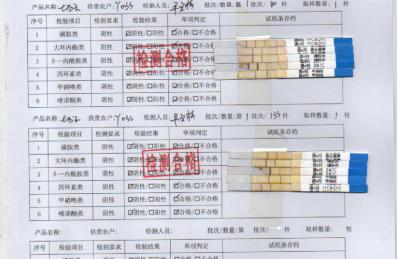 产品名称: 供货农户: Y053 检测人员: 批次/数量:第 1 批次/ 取样数量: 1 枚
序号 检验项目 检测要求 检验结果 单项判定 试纸条存档
1 磺胺类 阴性 ☑阴性/□阳性 ☑合格/□不合格
2 大环内酯类 阴性 ☑阴性/□阳性 ☑合格/□不合格
3 β一内酰胺类 阴性 ☑阴性/□阳性 ☑合格/□不合格
4 四环素类 阴性 ☑阴性/□阳性 ☑合格/□不合格
5 甲硝唑类 阴性 ☑阴性/□阳性 ☑合格/□不合格
6 喹诺酮类 阴性 ☑阴性/□阳性 ☑合格/□不合格
检测合格
产品名称: 供货农户: Y055 检测人员: 批次/数量:第 1 批次/ 取样数量: 1 枚
序号 检验项目 检测要求 检验结果 单项判定 试纸条存档
1 磺胺类 阴性 ☑阴性/□阳性 ☑合格/□不合格
2 大环内酯类 阴性 ☑阴性/□阳性 ☑合格/□不合格
3 β一内酰胺类 阴性 ☑阴性/□阳性 ☑合格/□不合格
4 四环素类 阴性 ☑阴性/□阳性 ☑合格/□不合格
5 甲硝唑类 阴性 ☑阴性/□阳性 ☑合格/□不合格
6 喹诺酮类 阴性 ☑阴性/□阳性 ☑合格/□不合格
检测合格
产品名称: 供货农户: 检测人员: 批次/数量:第 批次/ 取样数量: 枚
序号 检验项目 检测要求 检验结果 单项判定 试纸条存档